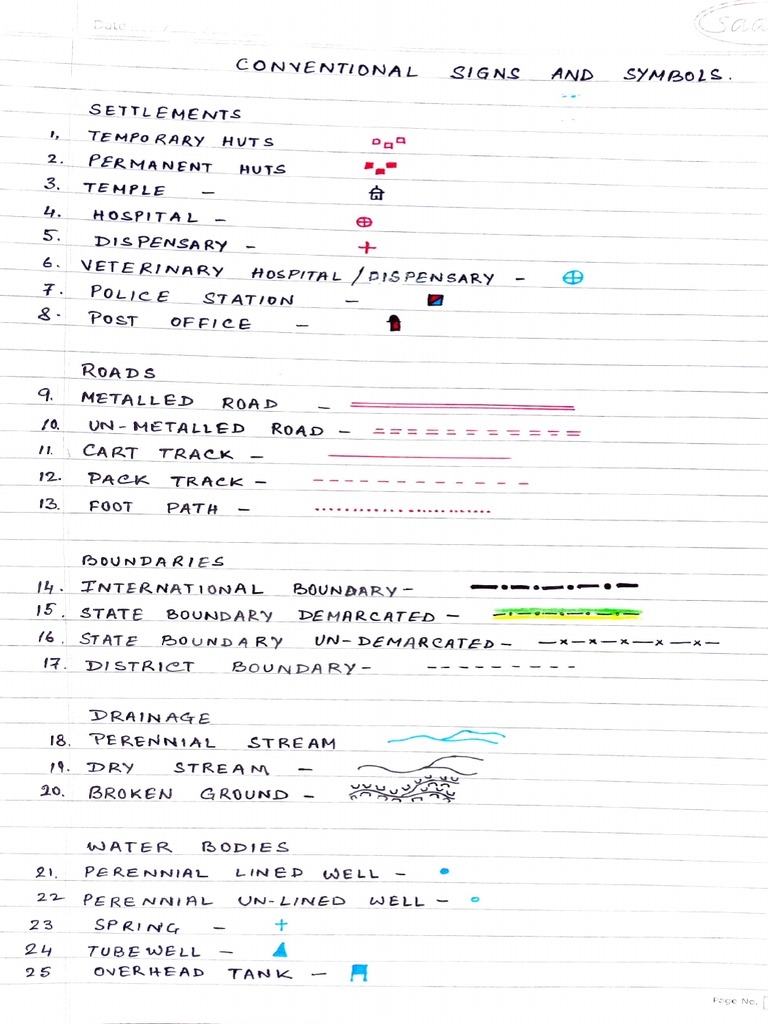 Date
saa
CONVENTIONAL SIGNS AND SYMBOLS.
SETTLEMENTS
1. TEMPORARY HUTS
2. PERMANENT HUTS
3. TEMPLE -
4. HOSPITAL -
5. DISPENSARY -
6. VETERINARY HOSPITAL / DISPENSARY -
7. POLICE STATION -
8. POST OFFICE -
ROADS
9. METALLED ROAD -
10. UN-METALLED ROAD -
11. CART TRACK -
12. PACK TRACK -
13. FOOT PATH -
BOUNDARIES
14. INTERNATIONAL BOUNDARY-
15. STATE BOUNDARY DEMARCATED -
16. STATE BOUNDARY UN-DEMARCATED-
17. DISTRICT BOUNDARY-
DRAINAGE
18. PERENNIAL STREAM
19. DRY STREAM -
20. BROKEN GROUND -
WATER BODIES
21. PERENNIAL LINED WELL -
22 PERENNIAL UN-LINED WELL -
23 SPRING -
24 TUBEWELL -
25 OVERHEAD TANK -
Page No.